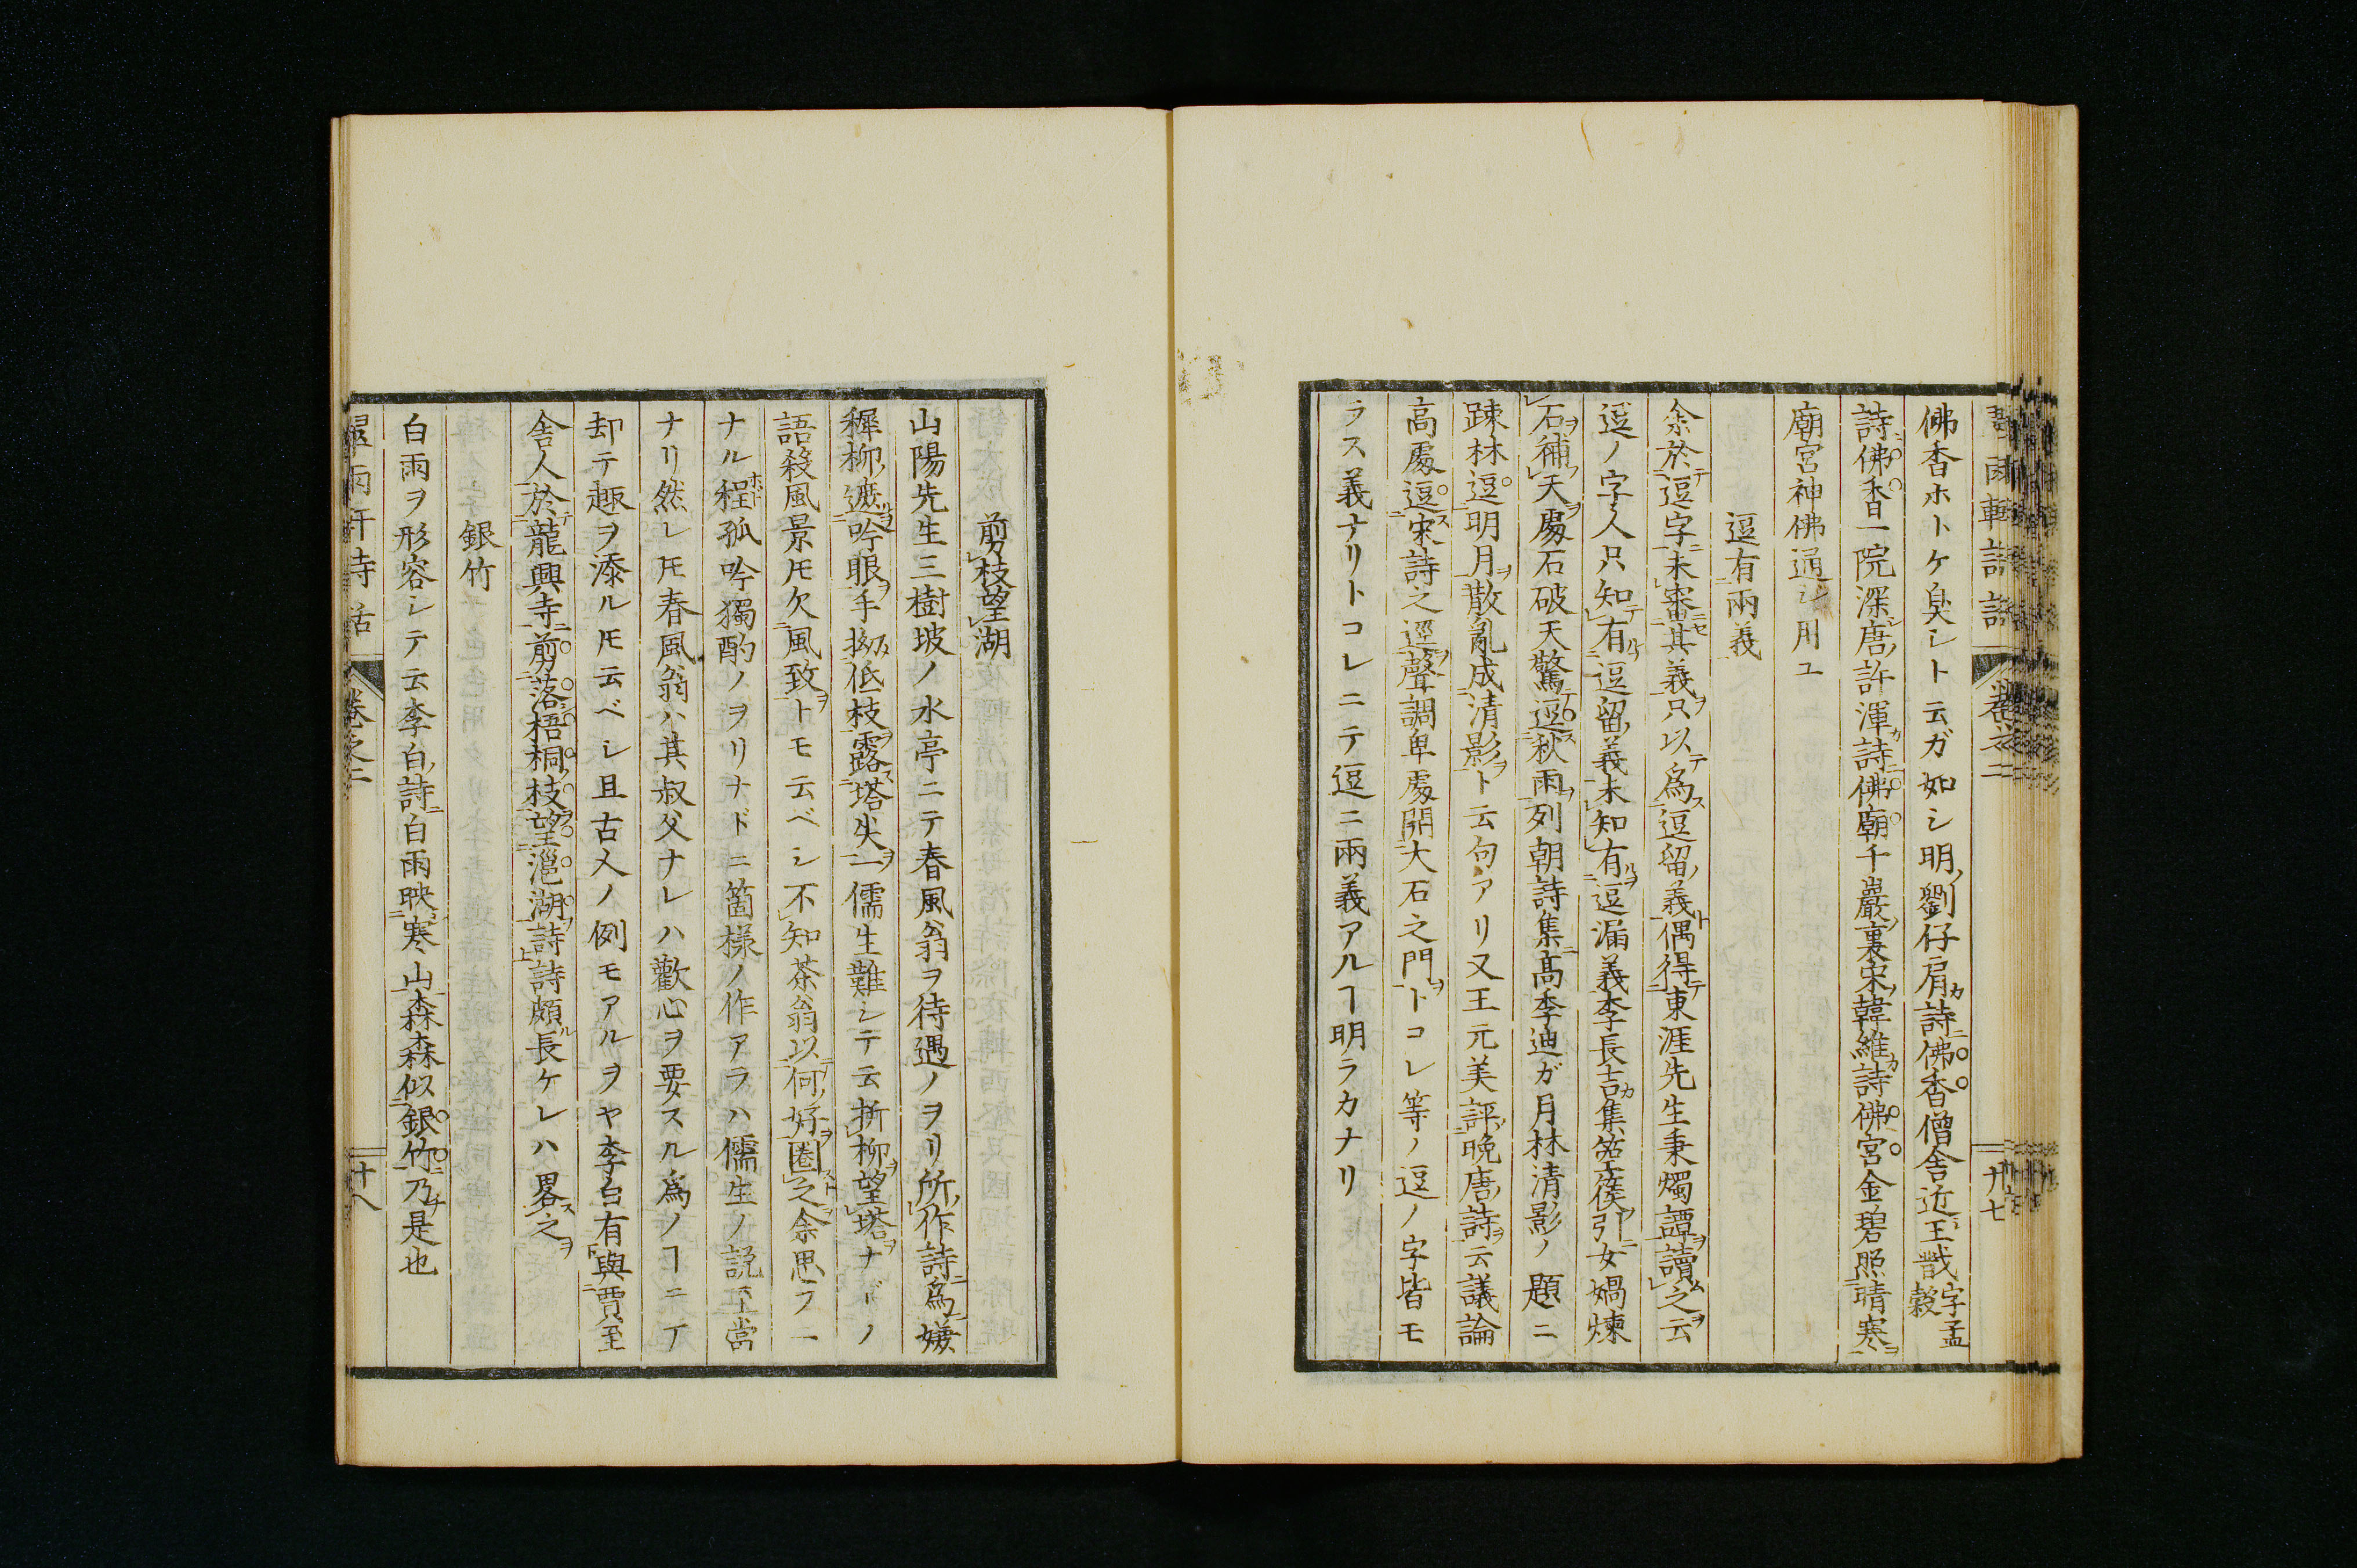 佛香ホトケ臭シト云ガ如シ明ノ劉仔肩カ詩ニ佛香僧舎近王戩字孟穀
詩ニ佛香一院深シ唐ノ許渾カ詩ニ佛廟千巖ノ裏宋ノ韓維カ詩佛宮金碧照晴寒ヲ
廟宮神佛通シ用ユ
逗有兩義
余於テ逗字ニ未審ニセ其義ヲ只以テ爲ス逗留ノ義ト偶得テ東涯先生秉燭譚ヲ讀ムニ之ヲ云
逗ノ字人只知テ有ヿヲ逗留ノ義未知有ヿヲ逗漏義李長吉カ集箜篌引ニ女媧煉
石ヲ補フ天ヲ處石破天驚テ逗ス秋雨ヲ列朝詩集ニ高季迪ガ月林清影ノ題ニ
踈林逗明月ヲ散亂成清影ヲト云句アリ又王元美評ノ晩唐ノ詩ヲ云議論
高處逗ス宋詩之逕ヲ聲調卑處開大石之門ヲトコレ等ノ逗ノ字皆モ
ラス義ナリトコレニテ逗ニ兩義アルヿ明ラカナリ
卷之二
十七
剪枝望湖
山陽先生三樹坡ノ水亭ニテ春風翁ヲ待遇ノヲリ所作ノ詩ニ爲嫌
穉柳ノ遮ルヲ吟眼ヲ手拗低枝ヲ露ス塔尖ヲ一儒生難シテ云折柳ヲ望塔ヲナドノ
語殺風景圧欠風致ヲトモ云ベシ不知茶翁以テ何ヲ好圏ストヲ之余思フニ
ナル程ホド孤吟獨酌ノヲリナドニ箇様ノ作アラハ儒生ノ説至當
ナリ然レ𪜈春風翁ハ其叔父ナレハ歡心ヲ要スル爲ノヿニテ
却テ趣ヲ添ル𪜈云ベシ且古人ノ例モアルヲヤ李白有與賈至
舎人於龍興寺ニ剪落梧桐ノ枝ヲ望㴩湖ヲ詩上詩頗ル長ケレハ畧ス之ヲ
銀竹
白雨ヲ形容シテ云李白ノ詩ニ白雨映寒山森森似銀竹ニ乃チ是也
卷之二
十八